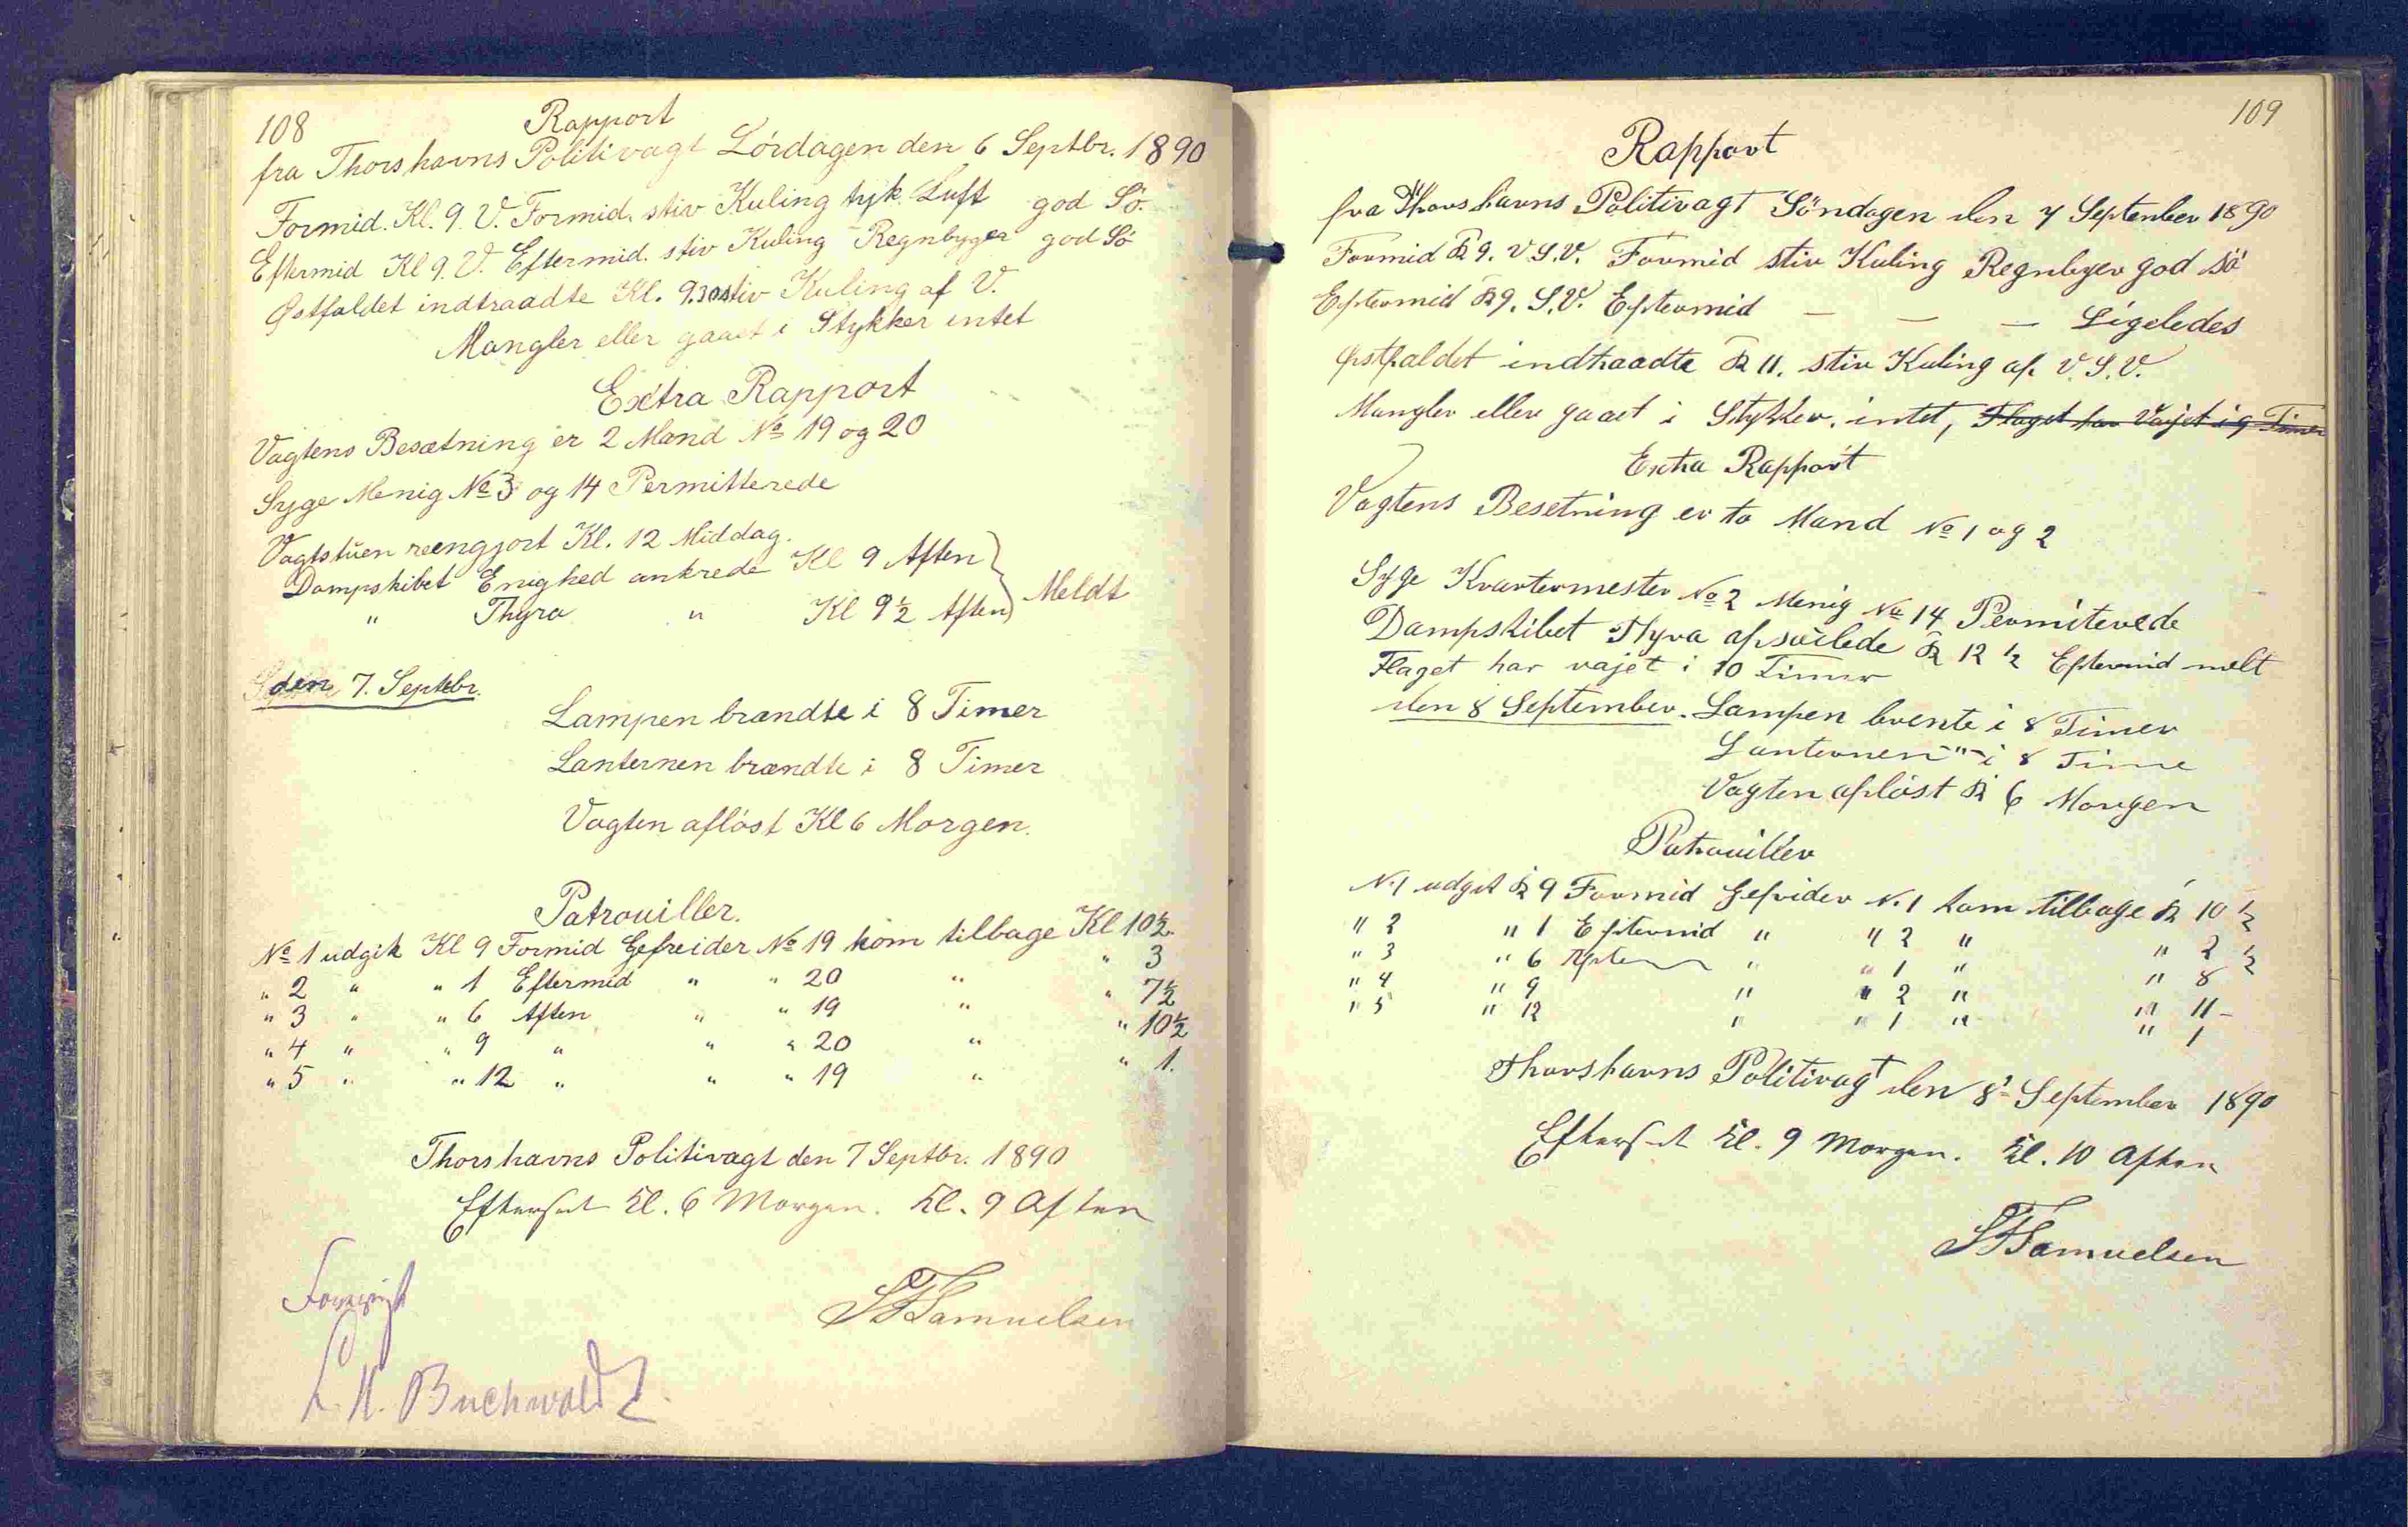 108
Rapport
fra Thorshavns Politivagt Lördagen den 6 Septbr. 1890
Formid. Kl. 9. V. Formid. stiv Kuling tyk Luft god Sö.
Eftermid Kl 9. V. Eftermid. stiv Kuling Regnbyger god Sö
Østfaldet indtraadte Kl. 9.30 stiv Kuling af V.
Mangler eller gaaet i Stykker intet
Extra Rapport
Vagtens Besætning er 2 Mand No 19 og 20
Syge Menig No 3 og 14 Permitterede
Vagtstuen reengjort Kl. 12 Middag.
Dampskibet Enighed ankrede Kl 9 Aften
" Thyra " Kl 9½ Aften } Meldt
den 7. Septebr.
Lampen brændte i 8 Timer
Lanternen brændte i 8 Timer
Vagten aflöst Kl 6 Morgen.
Patrouiller.
No 1 udgik Kl 9 Formid Gefreider No 19 kom tilbage Kl 10½
" 2 " " 1 Eftermid " " 20 " " 3
" 3 " " 6 Aften " " 19 " " 7½
" 4 " " 9 " " " 20 " " 10½
" 5 " " 12 " " " 19 " " 1.
Thorshavns Politivagt den 7 Septbr. 1890
Efterset Kl. 6 Morgen. Kl. 9 Aften
Samuelsen
Forevist
Buchwaldt
109
Rapport
fra Thorshavns Politivagt Söndagen den 7 September 1890
Formid Kl 9. V.S.V. Formid stiv Kuling Regnbyer god sö
Eftermid Kl 9. S.V. Eftermid — — — Ligeledes
Østfaldet indtraadte Kl 11. stiv Kuling af V.S.V.
Mangler eller gaaet i Stykker. intet, Flaget har Vajet i 9 Timer
Extra Rapport
Vagtens Besetning er to Mand No 1 og 2
Syge Kvartermester No 2 Menig No 14 Permiterede
Dampskibet Thyra afseilede Kl 12 ½ Eftermid melt
Flaget har vajet i 10 Timer
den 8 September. Lampen brente i 8 Timer
Lanternen -"- i 8 Time
Vagten aflöst Kl 6 Morgen
Patrouiller
N. 1 udgik Kl 9 Formid Gefrider N. 1 kom tilbage Kl 10 ½
" 2 " 1 Eftermid " " 2 " " 2 ½
" 3 " 6 Aften " " 1 " " 8
" 4 " 9 " " 2 " " 11 -
" 5 " 12 " " 1 " " 1
Thorshavns Politivagt den 8 September 1890
Efterset Kl. 9 Morgen. Kl. 10 Aften
Samuelsen